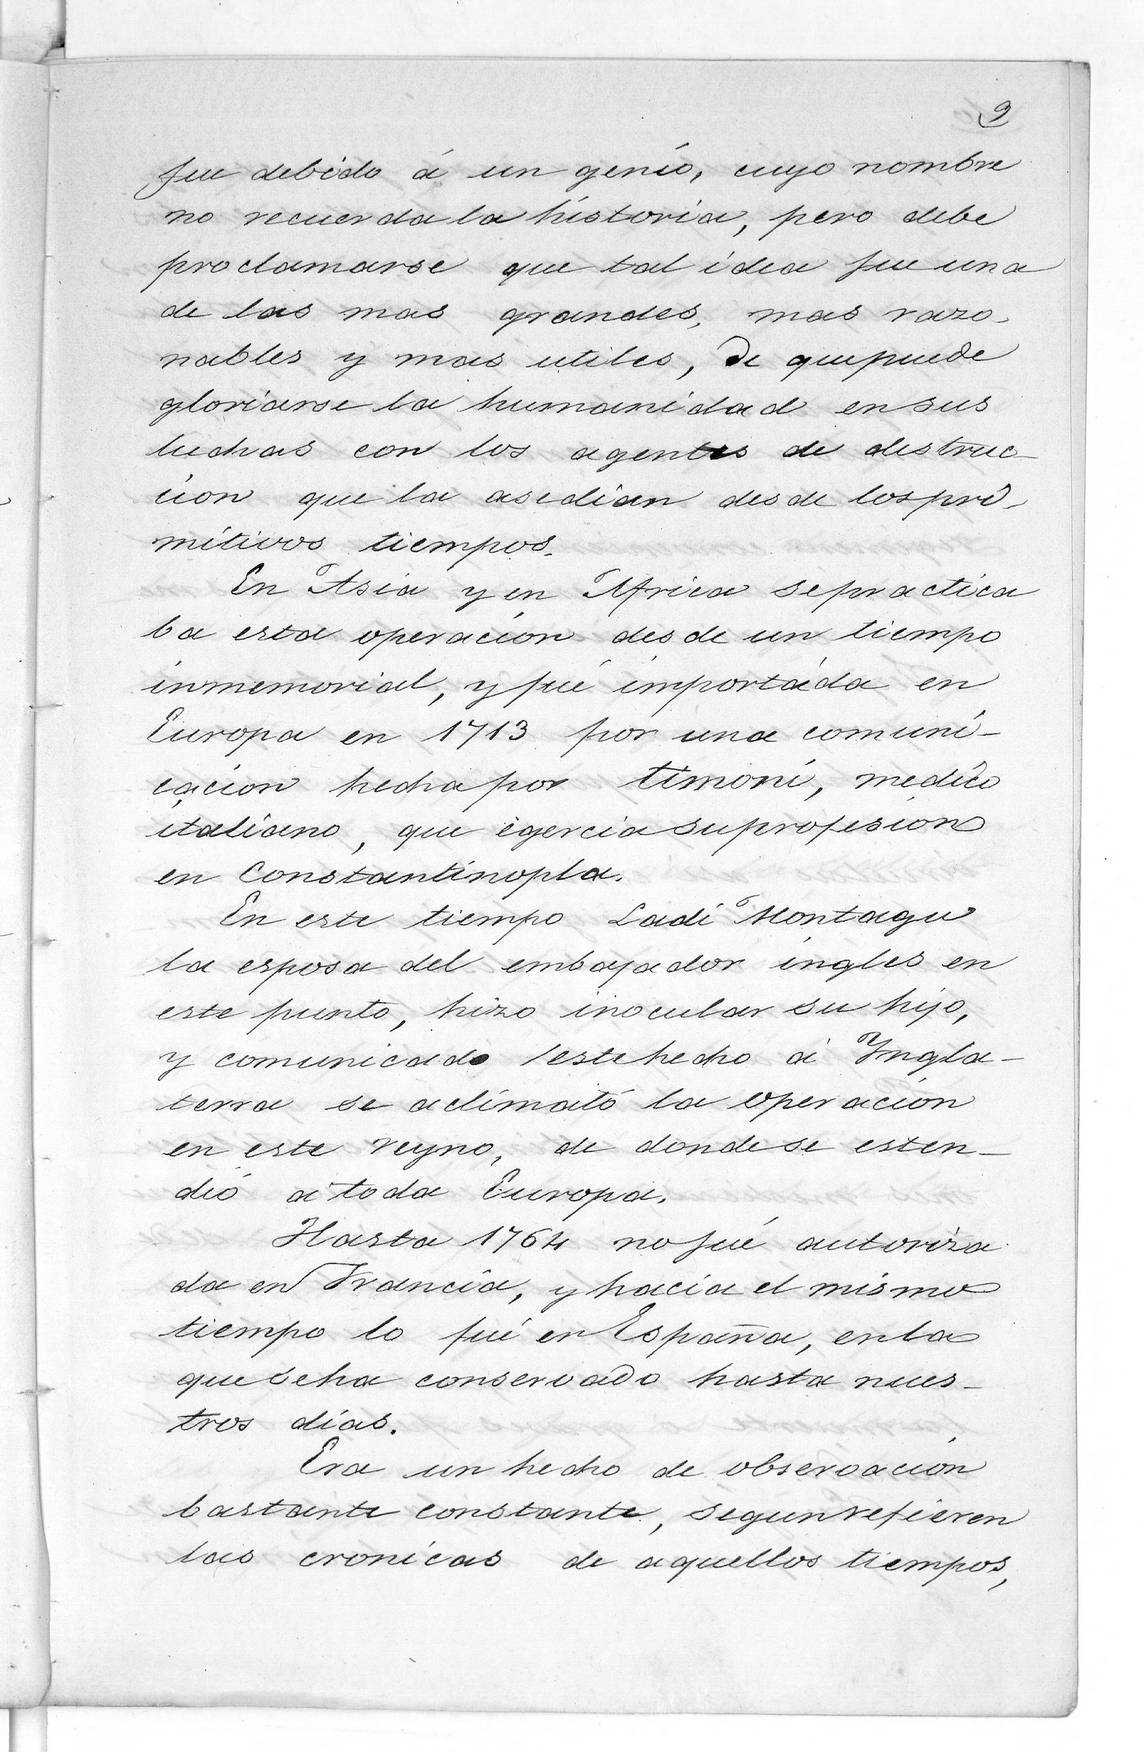 9
fue debido á un genio, cuyo nombre
no recuerda la historia, pero debe
proclamarse que tal idea fue una
de las mas grandes, mas razo-
nables y mas utiles, de que puede
gloriarse la humanidad en sus
luchas con los agentes de destruc-
cion que la asedian desde los pri-
mitivos tiempos.
En Asia y en Africa se practica
ba esta operacion desde un tiempo
inmemorial, y fué importáda en
Europa en 1713 por una comuni-
cacion hecha por timoni, medico
italiano, que egercia su profesion
en Constantinopla.
En este tiempo Ladi Montagu
la esposa del embajador ingles en
este punto, hizo inocular su hijo,
y comunicado este hecho á Yngla-
terra se aclimató la operacion
en este reyno, de donde se esten-
dió a toda Europa.
Hasta 1764 no fué autoriza
da en Francia, y hacia el mismo
tiempo lo fué en España, en la
que se ha conservado hasta nues-
tros dias.
Era un hecho de observación
bastante constante, segun refieren
las cronicas de aquellos tiempos,